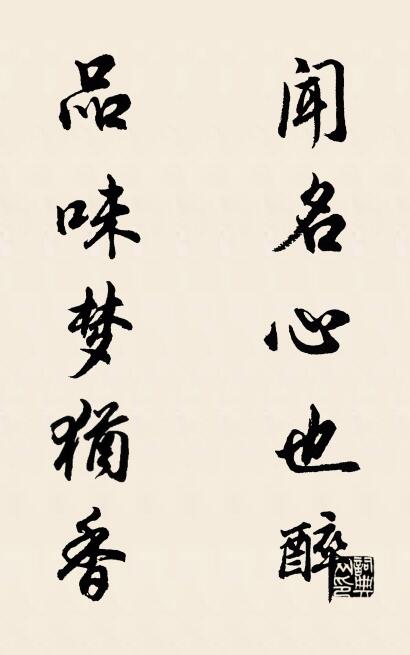 闻名心也醉
品味梦犹香